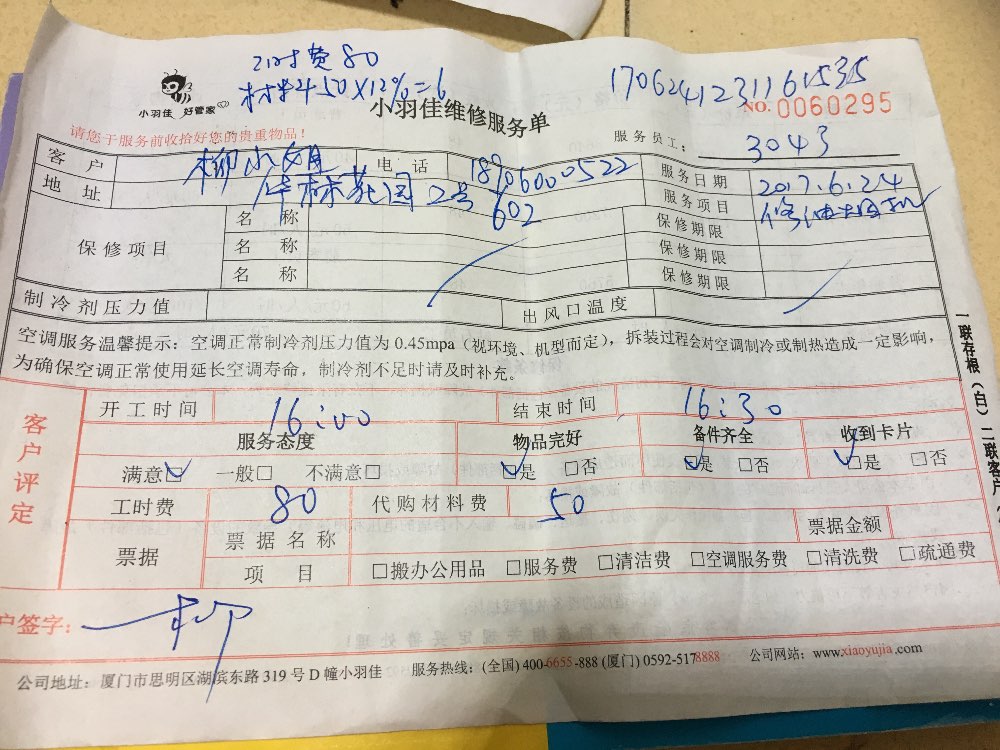 工时费80
材料50×12%=6
1706241231161535
小羽佳 好管家
小羽佳维修服务单
NO. 0060295
请您于服务前收拾好您的贵重物品!
服务员工: 3043
客户 柳小姐 电话 18906000522 服务日期 2017.6.24
地址 华林花园2号602 服务项目 修油烟机
保修项目 名称 保修期限
名称 保修期限
名称 保修期限
制冷剂压力值 出风口温度
空调服务温馨提示:空调正常制冷剂压力值为 0.45mpa(视环境、机型而定),拆装过程会对空调制冷或制热造成一定影响,
为确保空调正常使用延长空调寿命,制冷剂不足时请及时补充。
客户评定
开工时间 16:00 结束时间 16:30
服务态度 物品完好 备件齐全 收到卡片
满意☑ 一般□ 不满意□ ☑是 □否 ☑是 □否 ☑是 □否
工时费 80 代购材料费 50
票据 票据名称 票据金额
项目 □搬办公用品 □服务费 □清洁费 □空调服务费 □清洗费 □疏通费
户签字: 柳
公司地址:厦门市思明区湖滨东路 319 号 D 幢小羽佳 服务热线:(全国) 400-6655-888 (厦门) 0592-5178888 公司网站:www.xiaoyujia.com
一联存根(白) 二联客户